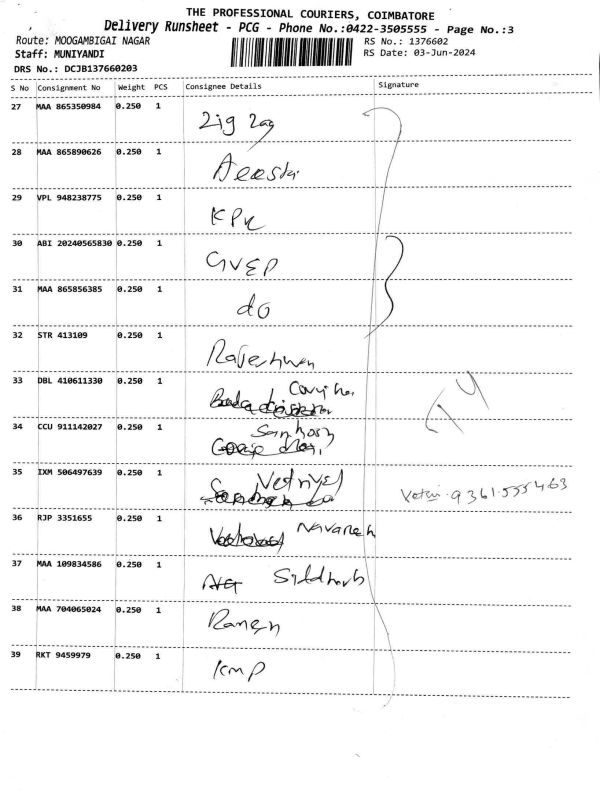 THE PROFESSIONAL COURIERS, COIMBATORE
Delivery Runsheet - PCG - Phone No.:0422-3505555 - Page No.:3
Route: MOOGAMBIGAI NAGAR RS No.: 1376602
Staff: MUNIYANDI RS Date: 03-Jun-2024
DRS No.: DCJB137660203
S No Consignment No Weight PCS Consignee Details Signature
27 MAA 865350984 0.250 1 Zig Zag
28 MAA 865890626 0.250 1
29 VPL 948238775 0.250 1 KPR
30 ABI 20240565830 0.250 1 GVEP
31 MAA 865856385 0.250 1 do
32 STR 413109 0.250 1 Rajeshwari
33 DBL 410611330 0.250 1
34 CCU 911142027 0.250 1 Santhosh
35 IXM 506497639 0.250 1 Vetrivel 9361555463
36 RJP 3351655 0.250 1 Navaneeth
37 MAA 109834586 0.250 1 Siddharth
38 MAA 704065024 0.250 1 Ramesh
39 RKT 9459979 0.250 1 KMP